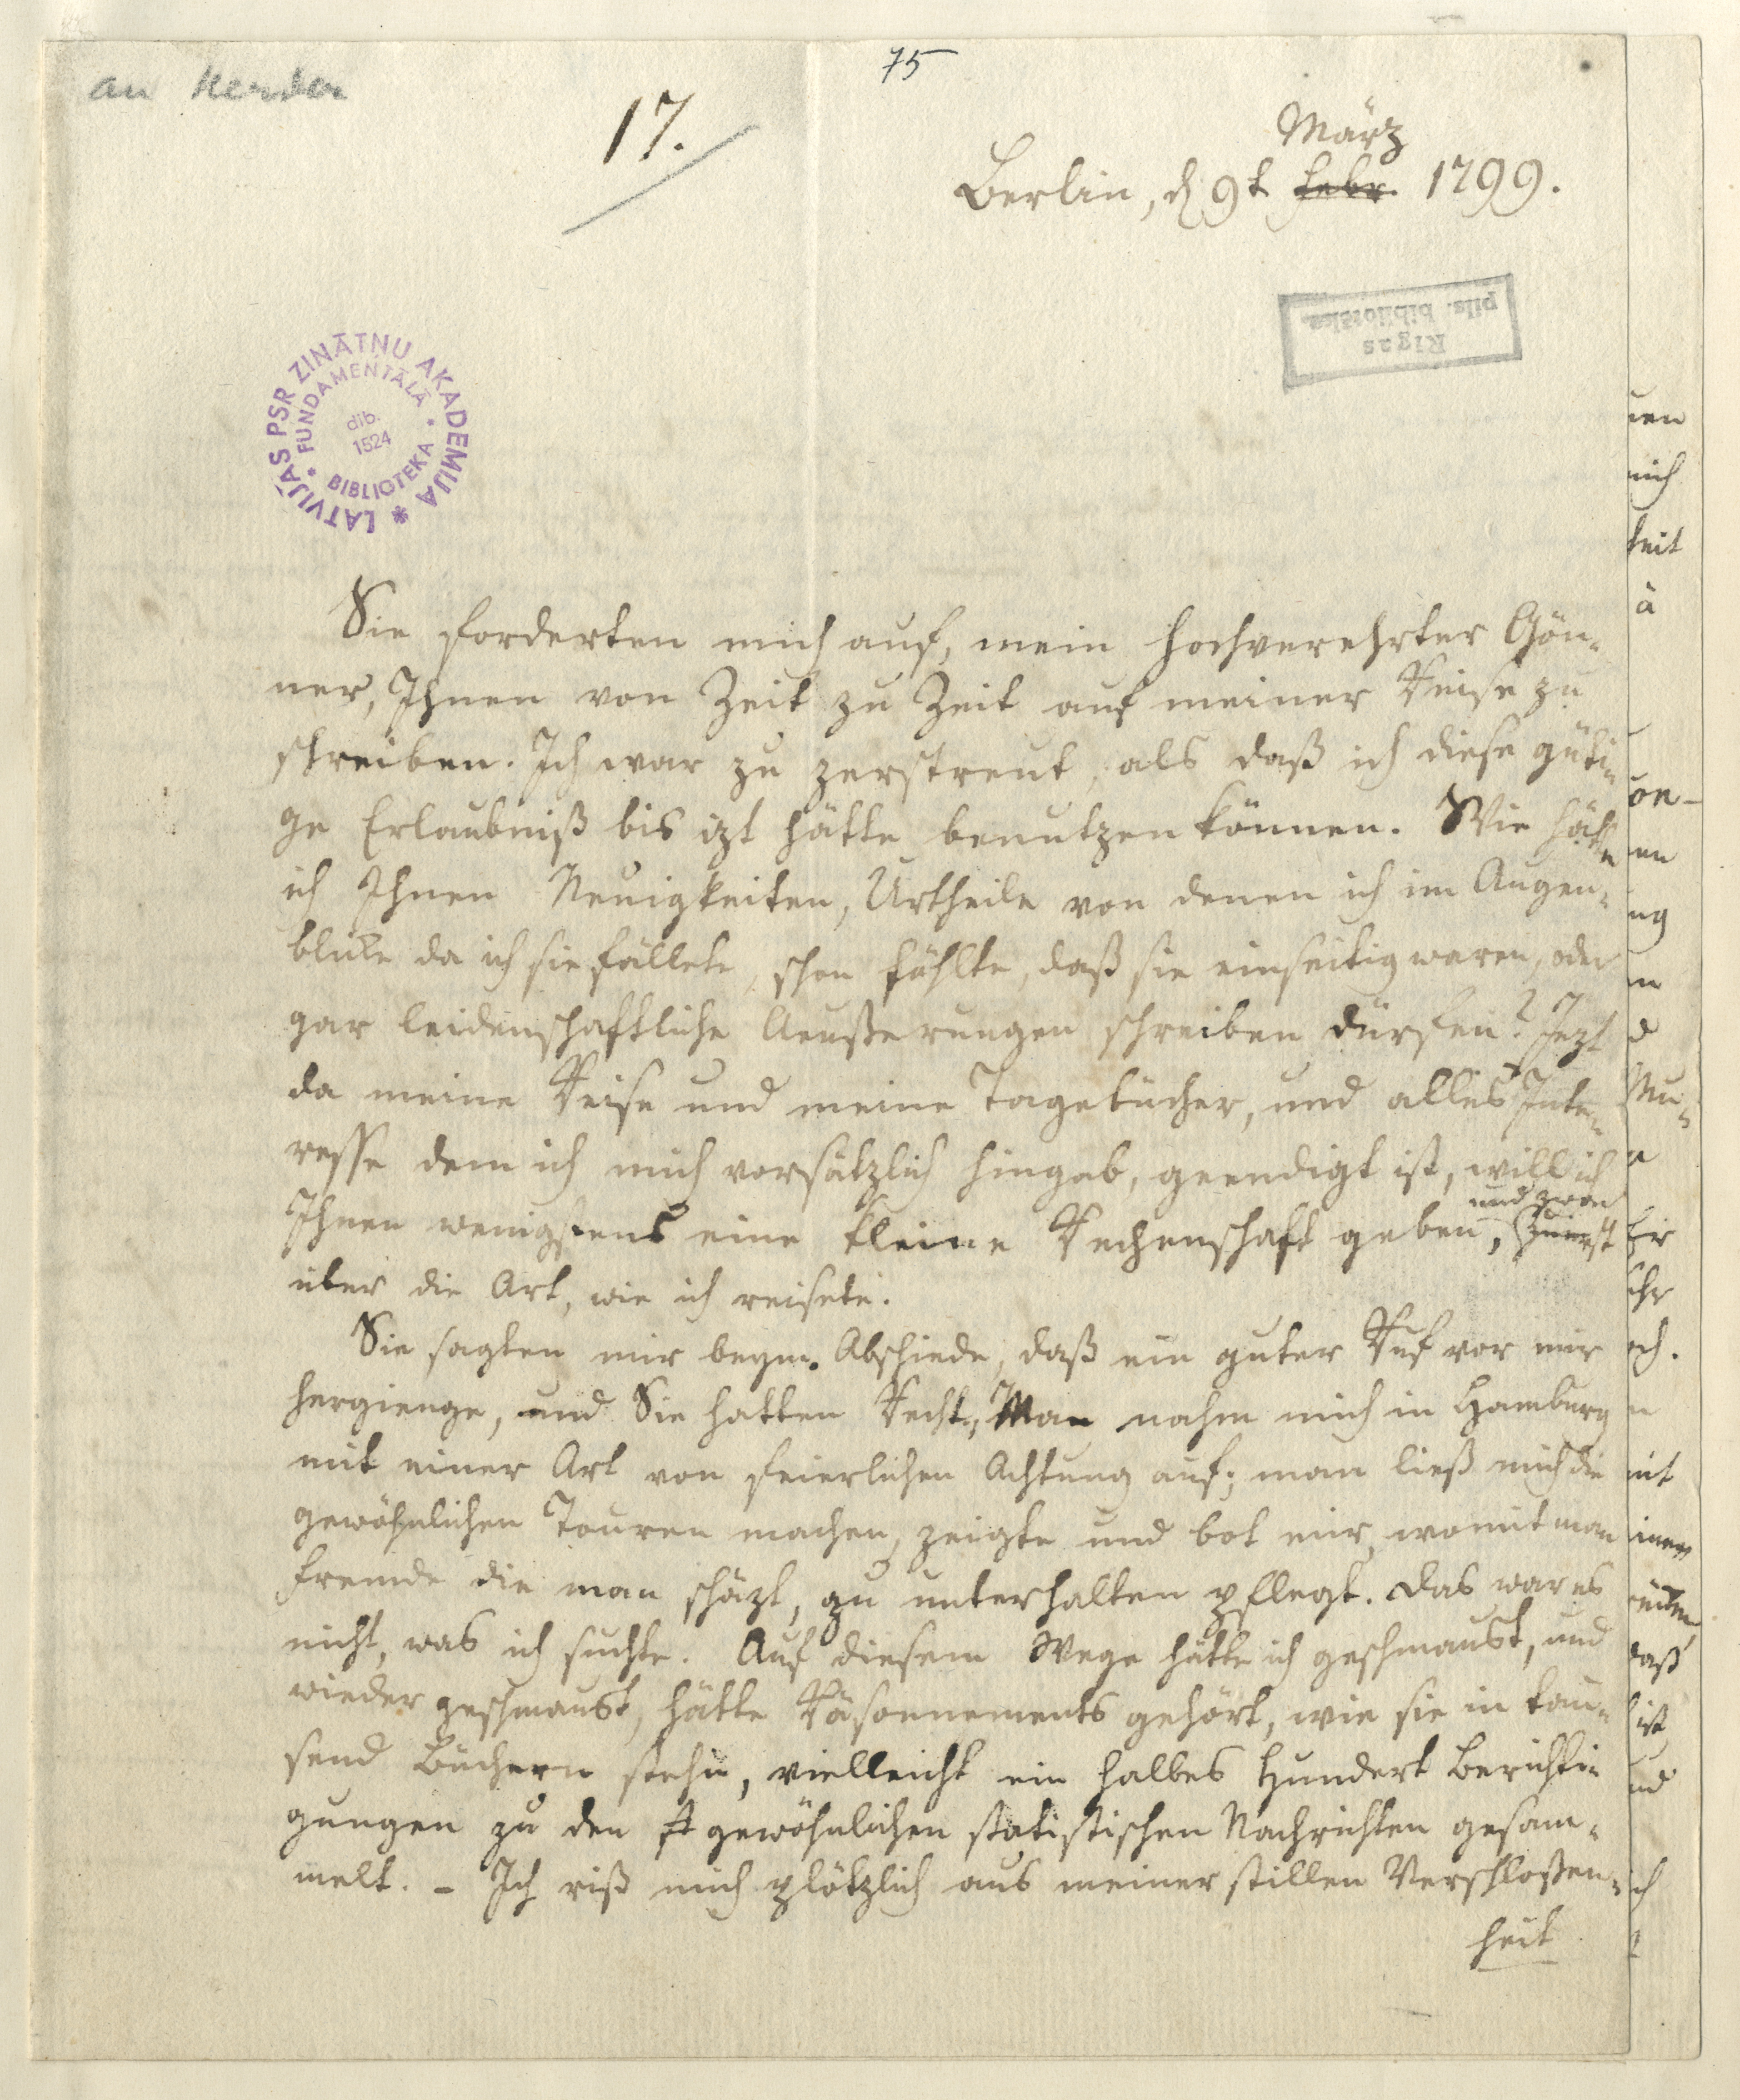 75
an Herder
17.
März
Berlin, d 9t Febr. 1799.
Rigas
pils. bibliotēka
LATVIJAS PSR ZINĀTŅU AKADEMIJA
FUNDAMENTĀLĀ BIBLIOTEKA
dib.
1524
Sie forderten mich auf, mein hochverehrter Gön-
ner, Ihnen von Zeit zu Zeit auf meiner Reise zu
schreiben. Ich war zu zerstreut, als daß ich diese güti-
ge Erlaubniß bis izt hätte benutzen können. Wie hätte
ich Ihnen Neuigkeiten, Urtheile von denen ich im Augen-
blicke da ich sie fällete, schon fühlte, daß sie einseitig waren, oder
gar leidenschaftliche Aeußerungen schreiben dürfen? Jezt
da meine Reise und meine Tagebücher, und alles Inte-
resse dem ich mich vorsätzlich hingab, geendigt ist, will ich
und zwar
Ihnen wenigstens eine kleine Rechenschaft geben, zuerst
über die Art, wie ich reisete.
Sie sagten mir beym Abschiede, daß ein guter Ruf vor mir
hergienge, und Sie hatten Recht. Man nahm mich in Hamburg
mit einer Art von feierlichen Achtung auf; man ließ mich die
gewöhnlichen Touren machen, zeigte und bot mir, womit man
Fremde die man schäzt, zu unterhalten pflegt. Das war es
nicht, was ich suchte. Auf diesem Wege hätte ich geschmaust, und
wieder geschmaust, hätte Räsonnements gehört, wie sie in tau-
send Büchern stehn, vielleicht ein halbes Hundert Berichti-
gungen zu den gewöhnlichen statistischen Nachrichten gesam-
melt. – Ich riß mich plötzlich aus meiner stillen Verschloßen-
heit